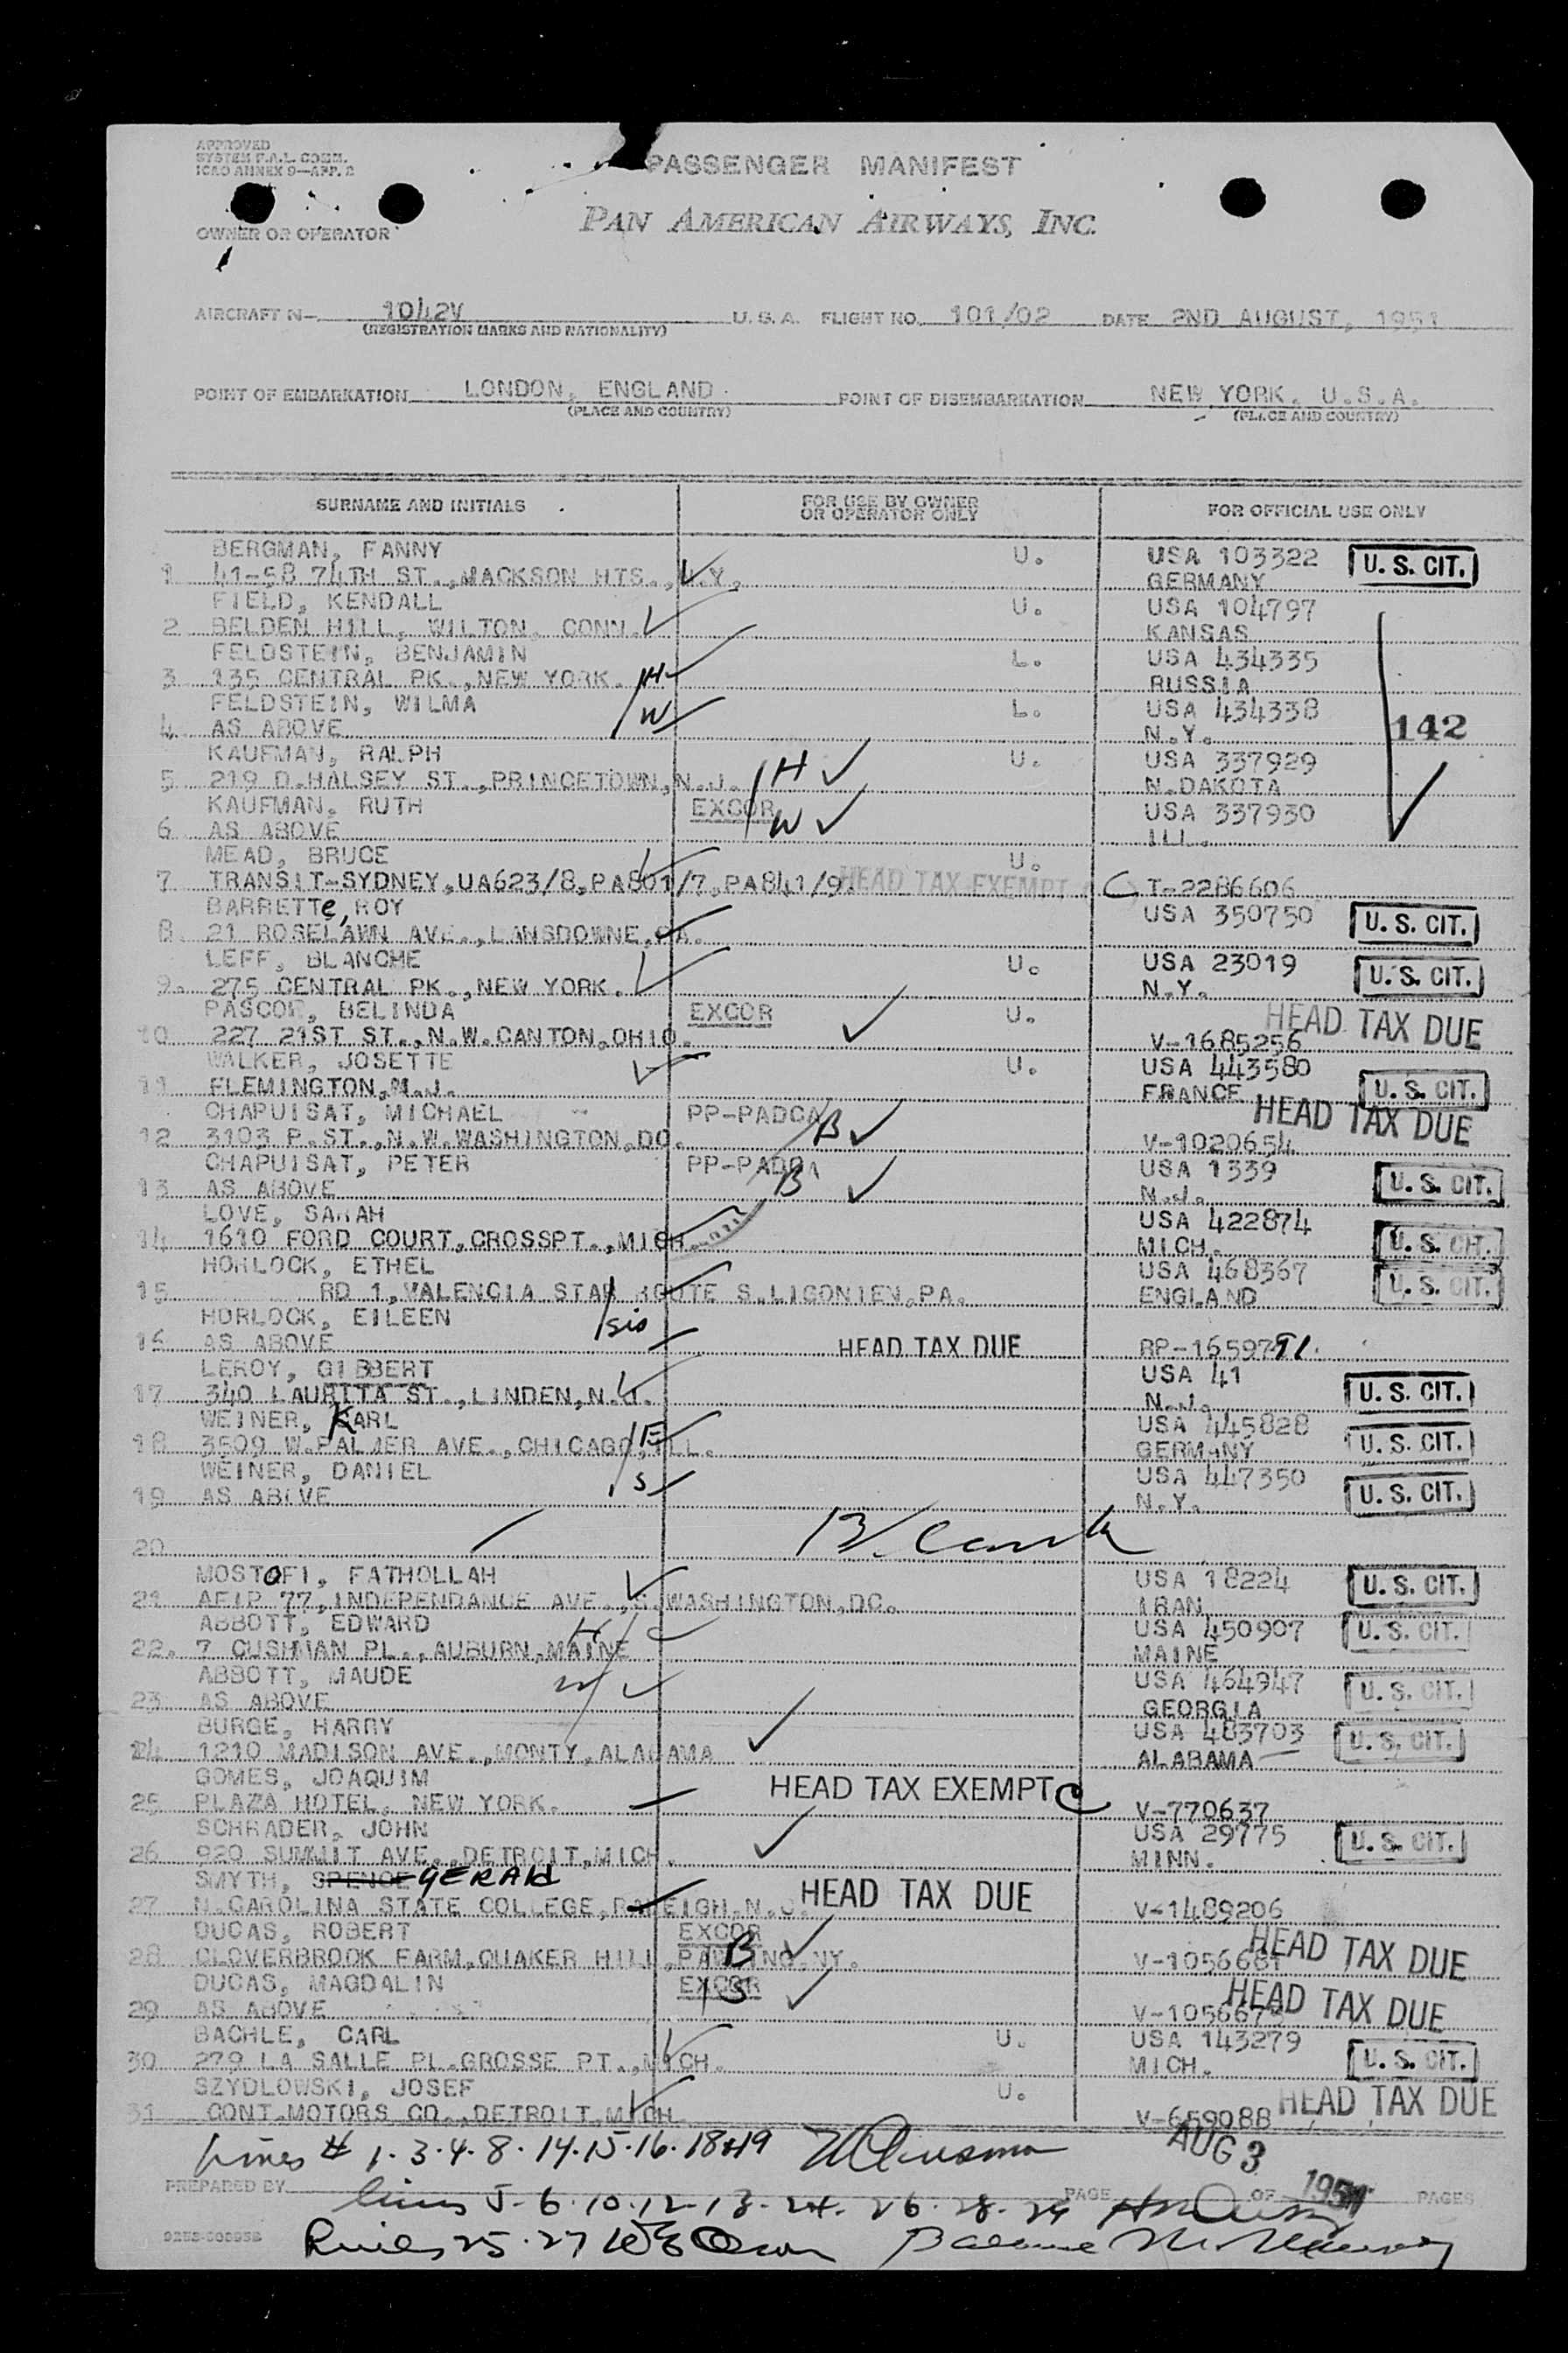 APPROVED
SYSTEM F.A.L. COMM.
ICAO ANNEX 9—APP. 2
PASSENGER MANIFEST
OWNER OR OPERATOR
PAN AMERICAN AIRWAYS, INC.
AIRCRAFT N— 1042V U.S.A. FLIGHT NO. 101/02 DATE 2ND AUGUST, 1951
(REGISTRATION MARKS AND NATIONALITY)
POINT OF EMBARKATION LONDON, ENGLAND POINT OF DISEMBARKATION NEW YORK. U.S.A.
(PLACE AND COUNTRY) (PLACE AND COUNTRY)
SURNAME AND INITIALS FOR USE BY OWNER OR OPERATOR ONLY FOR OFFICIAL USE ONLY
BERGMAN, FANNY U. USA 103322 U. S. CIT.
1 41-58 74TH ST.,MACKSON HTS.,N.Y. GERMANY
FIELD, KENDALL U. USA 104797
2 BELDEN HILL, WILTON, CONN. KANSAS
FELDSTEIN, BENJAMIN L. USA 434335
3 135 CENTRAL PK.,NEW YORK. H RUSSIA
FELDSTEIN, WILMA W L. USA 434338
4 AS ABOVE N.Y. 142
KAUFMAN, RALPH H U. USA 337929
5 219 D.HALSEY ST.,PRINCETOWN,N.J. N.DAKOTA
KAUFMAN, RUTH EXCOR W USA 337930
6 AS ABOVE ILL.
MEAD, BRUCE U.
7 TRANSIT-SYDNEY,UA623/8,PA801/7,PA841/9. HEAD TAX EXEMPT C T-2286606
BARRETTe, ROY USA 350750 U. S. CIT.
8 21 ROSELAWN AVE.,LANSDOWNE,PA.
LEFF, BLANCHE U. USA 23019 U. S. CIT.
9. 275 CENTRAL PK.,NEW YORK. N.Y.
PASCOR, BELINDA EXCOR U. HEAD TAX DUE
10 227 21ST ST.,N.W.CANTON,OHIO. V-1685256
WALKER, JOSETTE U. USA 443580
11 FLEMINGTON,N.J. FRANCE U. S. CIT.
CHAPUISAT, MICHAEL PP-PADCA B HEAD TAX DUE
12 3103 P.ST.,N.W.WASHINGTON,DC. V-1020654
CHAPUISAT, PETER PP-PADCA B USA 1339 U. S. CIT.
13 AS ABOVE N.J.
LOVE, SARAH USA 422874
14 1610 FORD COURT,GROSSPT.,MICH. MICH. U. S. CIT.
HORLOCK, ETHEL USA 468367 U. S. CIT.
15 RD 1,VALENCIA STAR ROUTE S.LIGONIEN,PA. ENGLAND
HORLOCK, EILEEN sis
16 AS ABOVE HEAD TAX DUE RP-1659791.
LEROY, GIBBERT USA 41
17 340 LAURITA ST.,LINDEN,N.J. N.J. U. S. CIT.
WEINER, KARL F USA 445828
18 3509 W.PALMER AVE.,CHICAGO,ILL. GERMANY U. S. CIT.
WEINER, DANIEL S USA 447350
19 AS ABLVE N.Y. U. S. CIT.
20 Blank
MOSTOFI, FATHOLLAH USA 18224 U. S. CIT.
21 AFIP 77,INDEPENDANCE AVE.,S.WASHINGTON,DC. IRAN
ABBOTT, EDWARD H USA 450907 U. S. CIT.
22. 7 CUSHMAN PL.,AUBURN,MAINE MAINE
ABBOTT, MAUDE W USA 464947 U. S. CIT.
23 AS ABOVE GEORGIA
BURGE, HARRY USA 483703 U. S. CIT.
24 1210 MADISON AVE.,MONTY,ALABAMA ALABAMA
GOMES, JOAQUIM HEAD TAX EXEMPT C
25 PLAZA HOTEL, NEW YORK. V-770637
SCHRADER, JOHN USA 29775 U. S. CIT.
26 920 SUMMIT AVE.,DETROIT,MICH. MINN.
SMYTH, SPENCE GERAld
27 N.CAROLINA STATE COLLEGE,RALEIGH.N.C. HEAD TAX DUE V-1489206
DUCAS, ROBERT EXCOR B HEAD TAX DUE
28 CLOVERBROOK FARM,QUAKER HILL,PAWLING.NY. V-1056681
DUCAS, MAGDALIN EXCOR S HEAD TAX DUE
29 AS ABOVE
BACHLE, CARL U. USA 143279
30 279 LA SALLE PL.GROSSE PT.,MICH. MICH. U. S. CIT.
SZYDLOWSKI, JOSEF U. HEAD TAX DUE
31 CONT.MOTORS CO.,DETROIT,MICH. V-659088
Lines # 1·3·4·8·14·15·16·18+19 AUG 3 1951
PREPARED BY PAGE OF PAGES
Lines 5-6-10-12-13-24-26-28-29
Lines 25·27